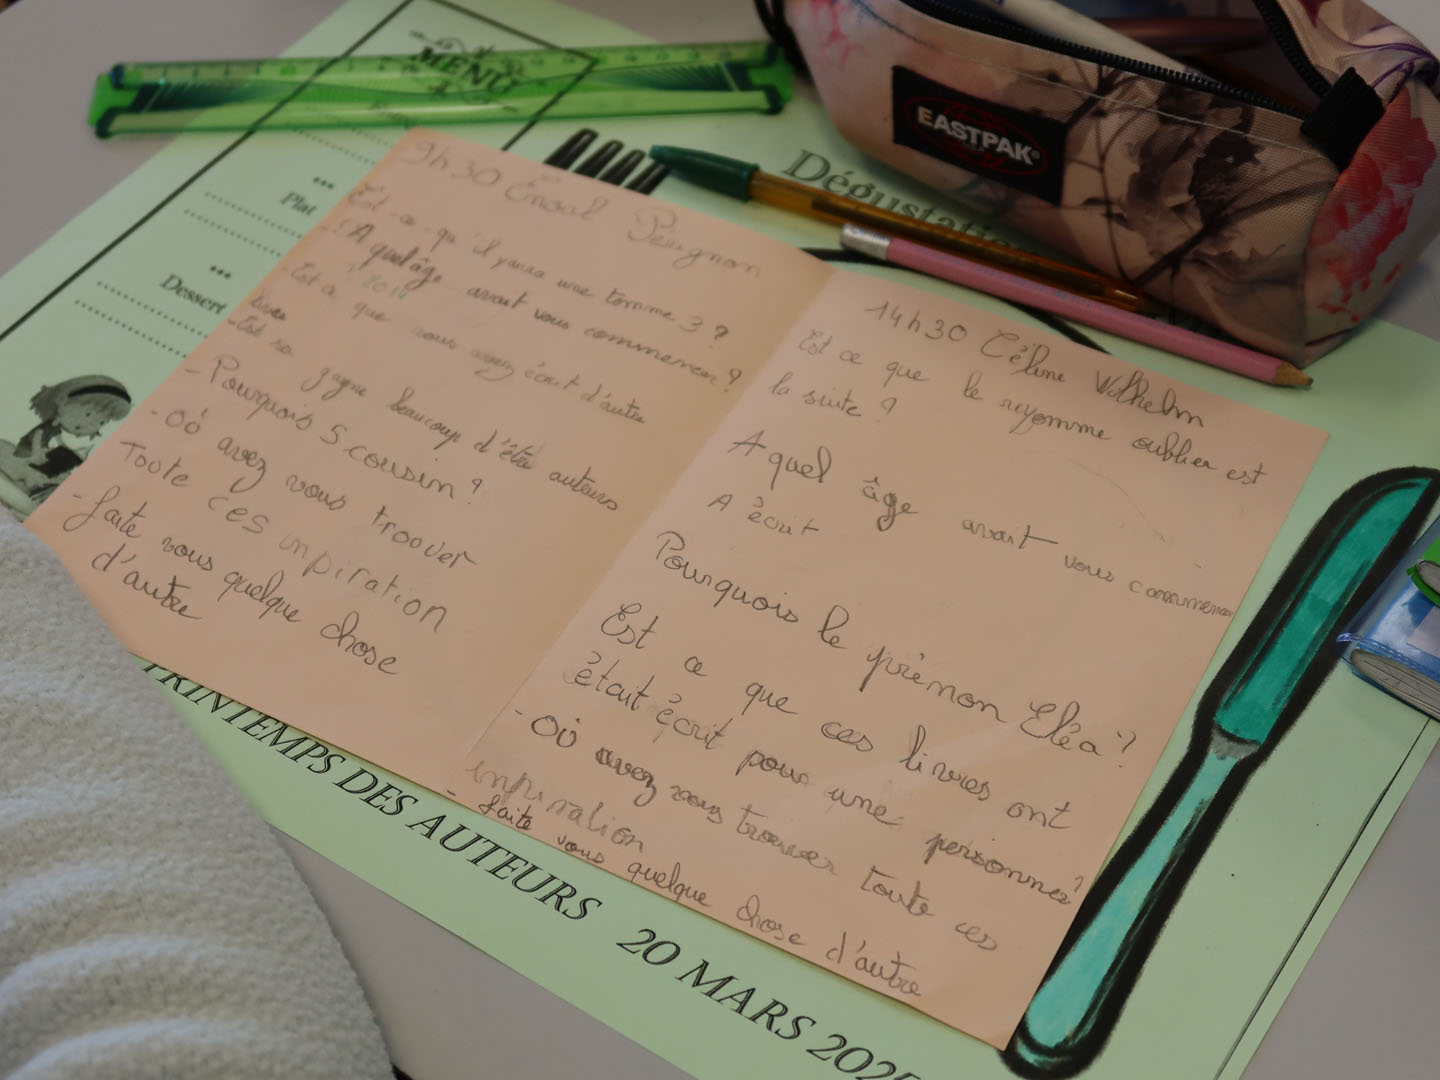 MENU
Plat
Dessert
Dégustation
EASTPAK
9h30 Pérignon
Est-ce-qu'il yaura une tomme 3 ?
- A quel âge avait vous commencer ?
2011
- Est ce que vous avez écrit d'autre
livres
- Est sa gagne beaucoup d'être auteurs
- Pourquois 5 cousin ?
- Où avez vous troover
Toute ces inpiration
- faite vous quelque chose
d'autre
14h30 Céline Wilhelm
Est ce que le royomme oublier est
la suite ?
A quel âge avait vous commencer
A écrit
Pourquois le prénon Eléa ?
Est ce que ces livres ont
était écrit pour une personnes ?
- Où avez vous trouver toute ces
inpiration
- faite vous quelque chose d'autre
PRINTEMPS DES AUTEURS 20 MARS 2025